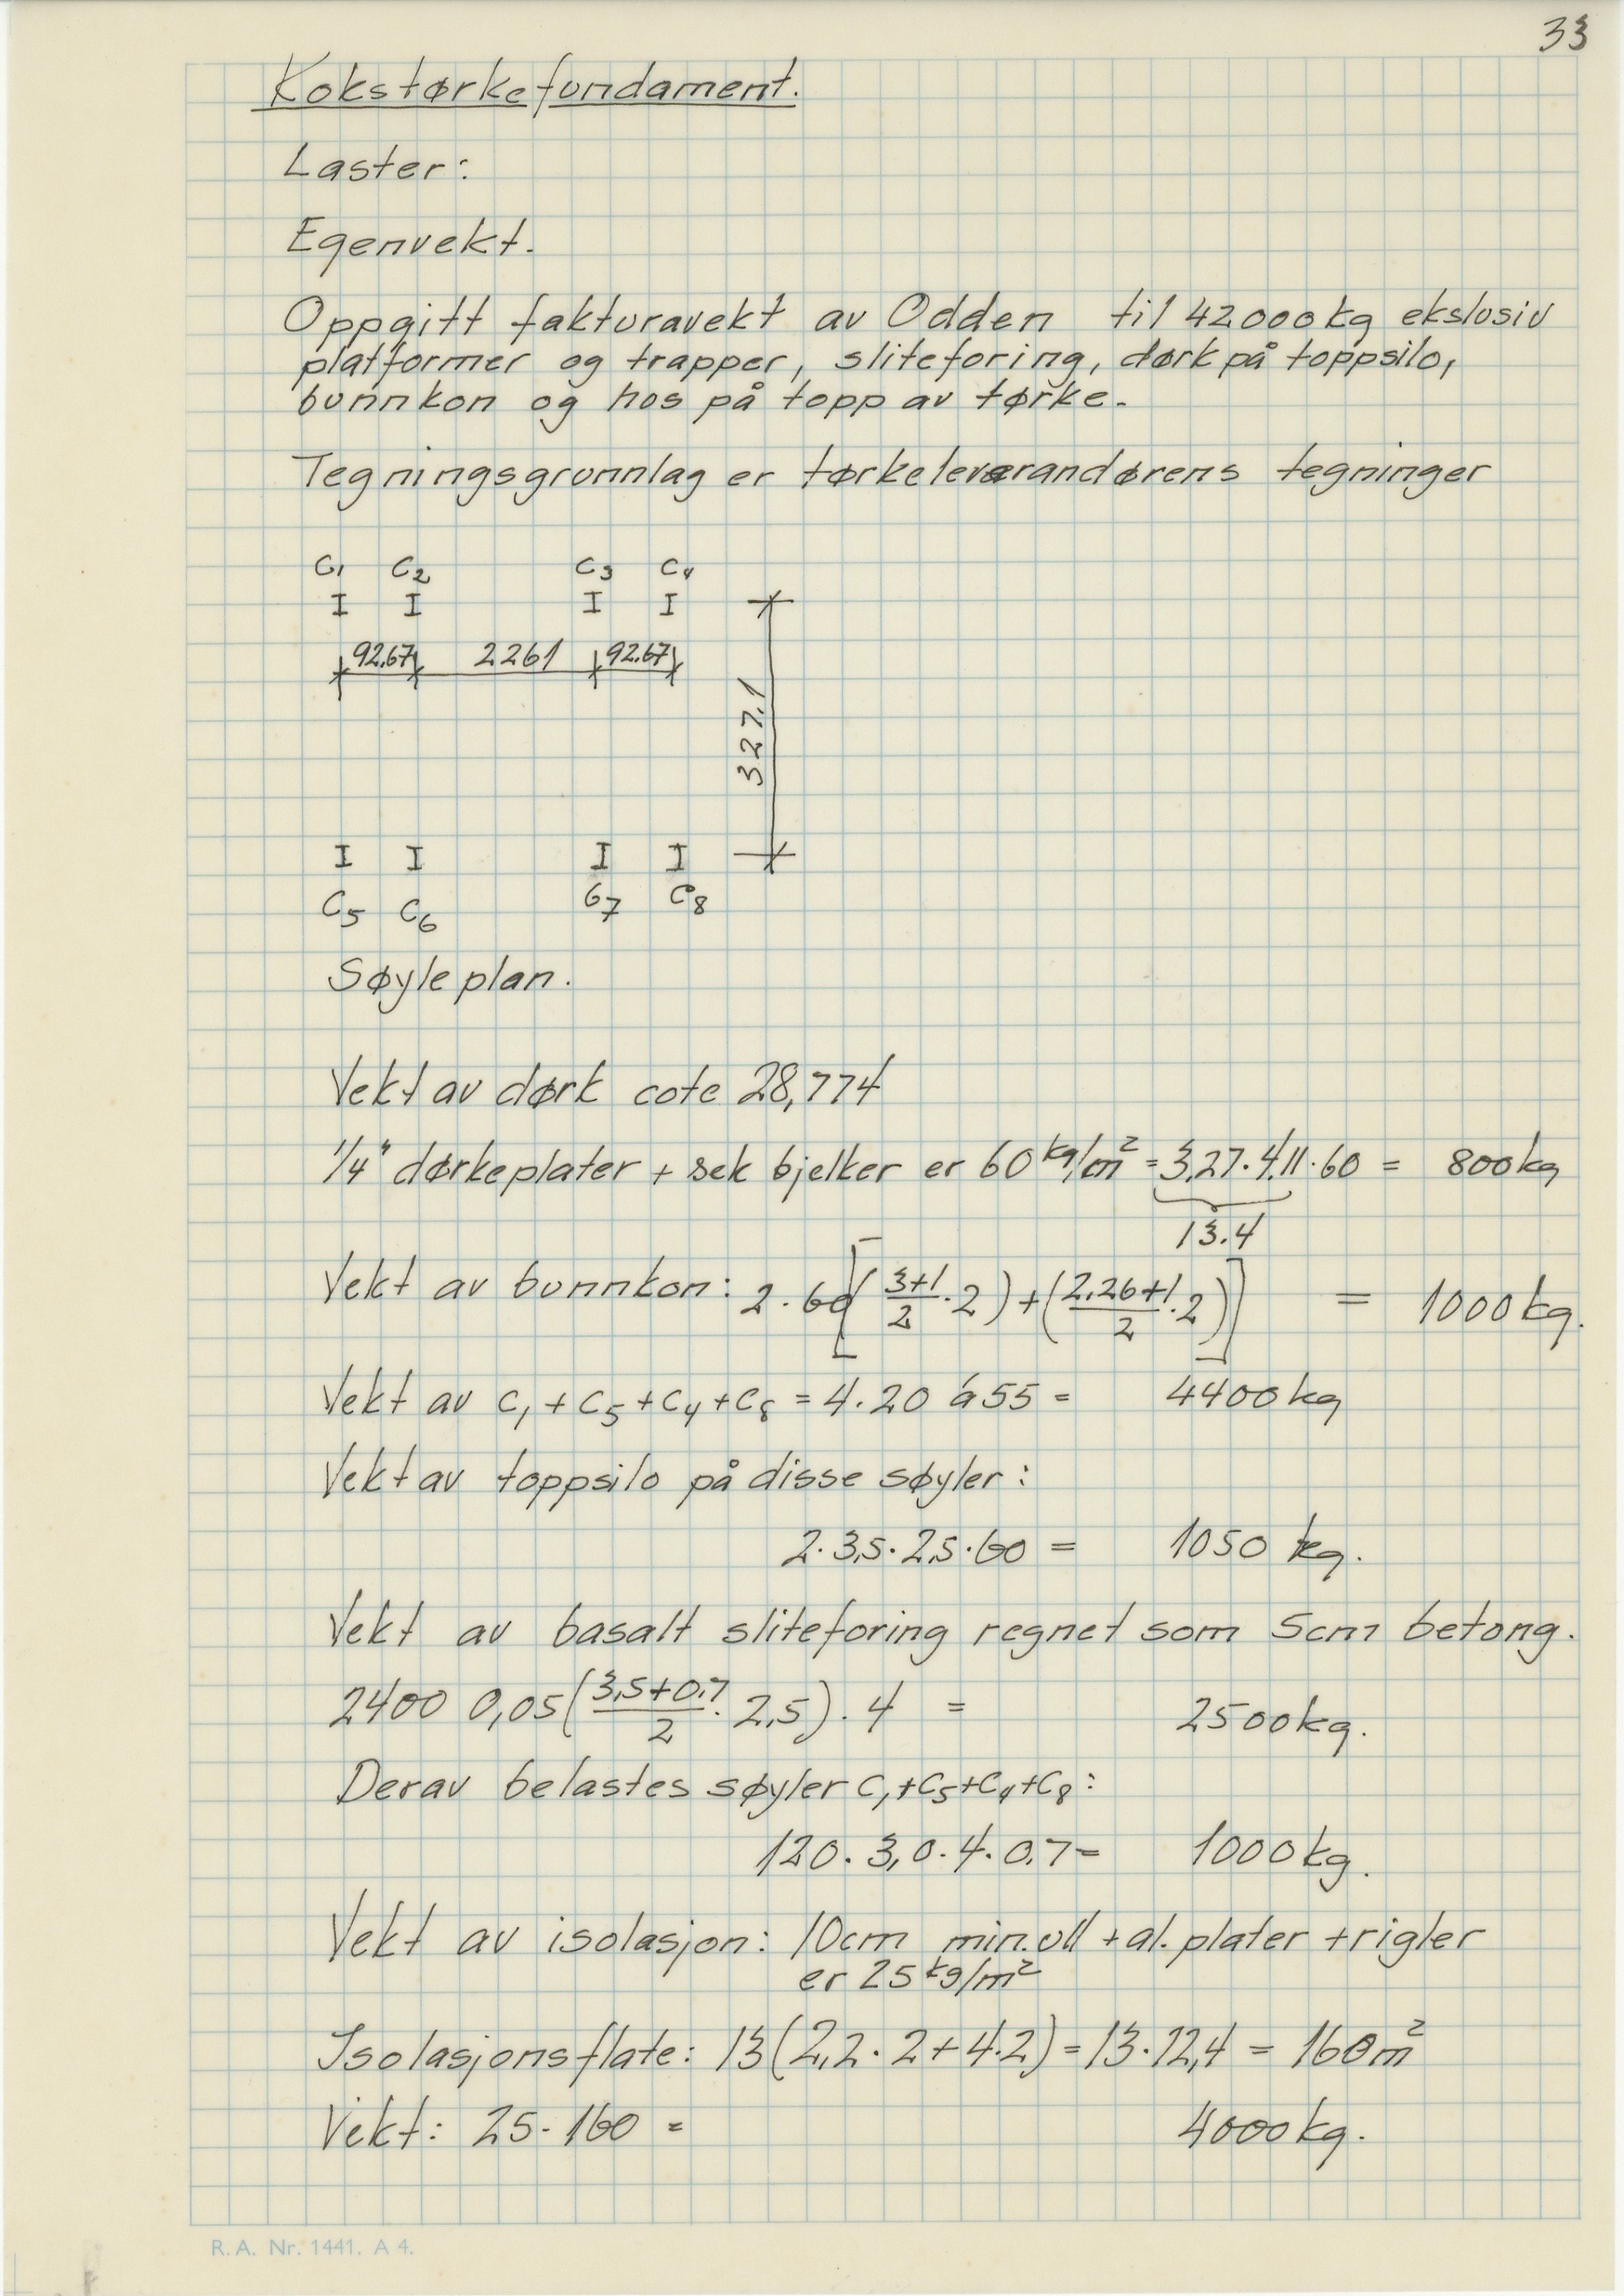 33
Kokstørkefundament.
Laster:
Egenvekt.
Oppgitt fakturavekt av Odden til 42000kg ekslusiv
platformer og trapper, sliteforing, dørk på toppsilo,
bunnkon og hos på topp av tørke.
Tegningsgrunnlag er tørkeleverandørens tegninger
C1 C2 C3 C4
I I I I
92.67 2261 92.67
327.1
I I I I
C5 C6 C7 C8
Søyleplan.
Vekt av dørk cote 28,774
1/4" dørkeplater + sek bjelker er 60 kg/m² = 3,27·4,11·60 = 800kg
13.4
Vekt av bunnkon: 2·60[(3+1/2·2)+(2,26+1/2·2)] = 1000kg.
Vekt av C1+C5+C4+C8 = 4·20 á 55 = 4400kg
Vekt av toppsilo på disse søyler:
2·3,5·2,5·60 = 1050 kg.
Vekt av basalt sliteforing regnet som 5cm betong.
2400 0,05(3,5+0,7/2·2,5)·4 = 2500kg.
Derav belastes søyler C1+C5+C4+C8:
120·3,0·4·0.7= 1000kg.
Vekt av isolasjon: 10cm min.ull + al.plater + rigler
er 25 kg/m²
Isolasjonsflate: 13(2,2·2+4·2)=13·12,4 = 160m²
Vekt: 25·160 = 4000kg.
R.A. Nr. 1441. A 4.